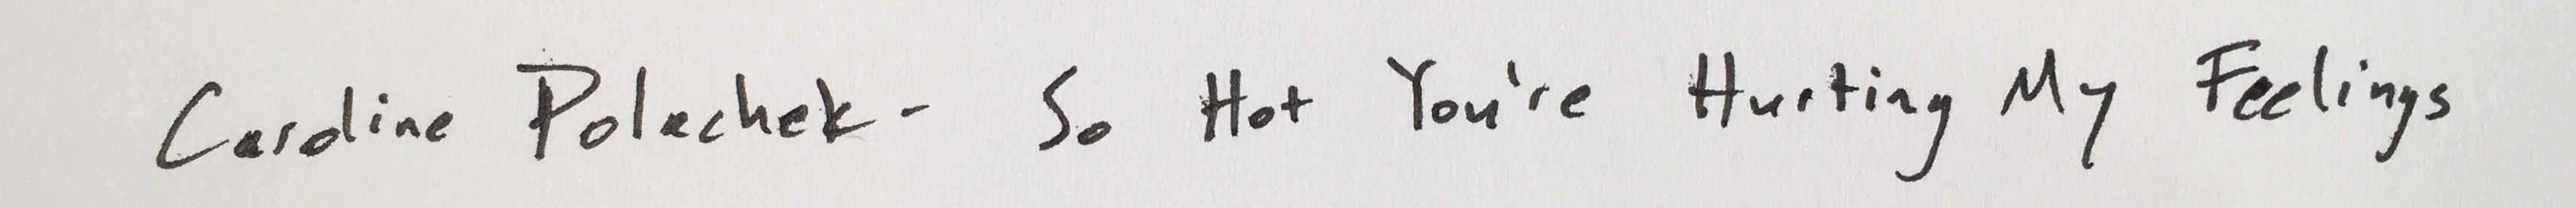 Caroline Polachek - So Hot You're Hurting My Feelings